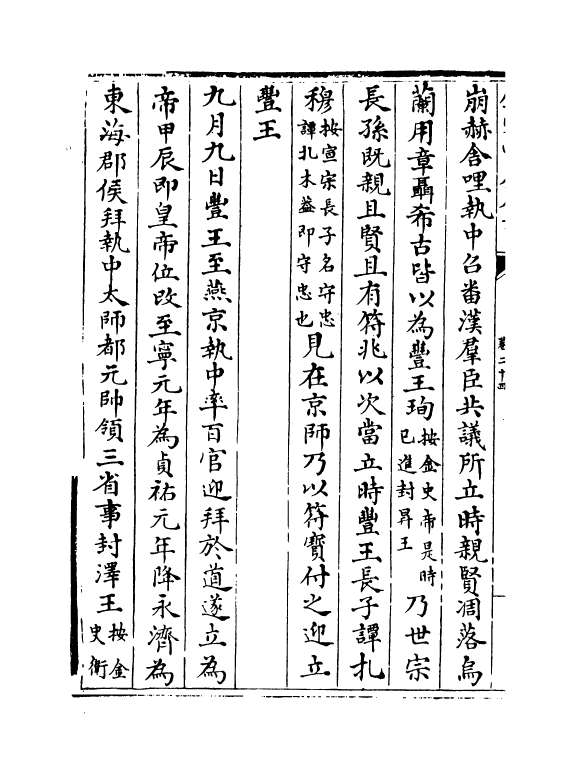 崩赫舍哩執中召畨漢羣臣共議所立時親賢凋落烏
蘭用章聶希古皆以為豐王珣按金史帝是時已進封昇王乃世宗
長孫既親且賢且有符兆以次當立時豐王長子譚扎
穆按宣宗長子名守忠譚扎木葢即守忠也見在京師乃以符寳付之迎立
豐王
九月九日豐王至燕京執中率百官迎拜於道遂立為
帝甲辰即皇帝位改至寧元年為貞祐元年降永濟為
東海郡侯拜執中太師都元帥領三省事封澤王按金史衛
卷二十四